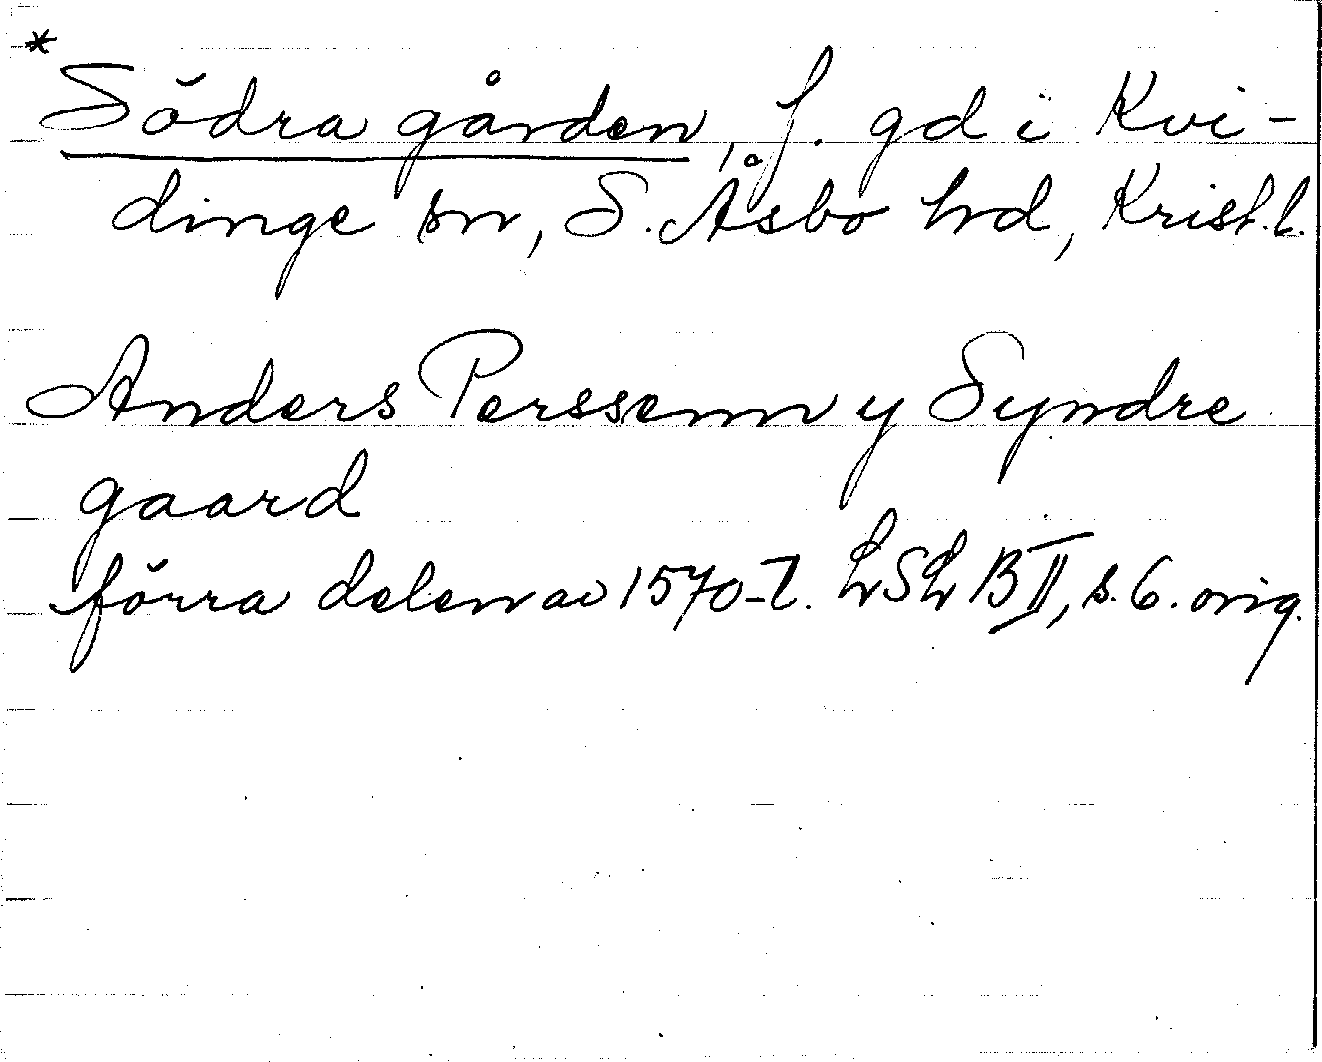 *
Södra gården, f. gd i Kvi-
dinge sn, S. Åsbo hd, Krist. l.
Anders Perssenn y Syndre
gaard
förra delen av 1570-t. LSL BII, s. 6. orig.